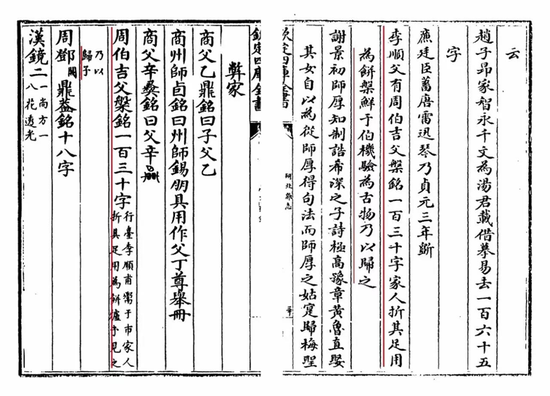 云
趙子昂家智永千文為湯君載借摹易去一百六十五
字
廉廷臣蓄唐雷迅琴乃貞元三年斲
李順父有周伯吉父槃銘一百三十字家人折其足用
為餅槃鮮于伯機驗為古物乃以歸之
謝景初師厚知制誥希深之子詩極高豫章黃魯直娶
其女自以為從師厚得句法而師厚之姑寔歸梅聖
欽定四庫全書
研北雜志
欽定四庫全書
家
商父乙鼎銘曰子父乙
商州師卣銘曰州師錫朋貝用作父丁尊舉冊
商父辛彝銘曰父辛
周伯吉父槃銘一百三十字行臺李順甫鬻于市家人
折其足用為餅爐予見之
乃以
歸予
周鄧闕鼎蓋銘十八字
漢鏡二一尚方一
八花透光